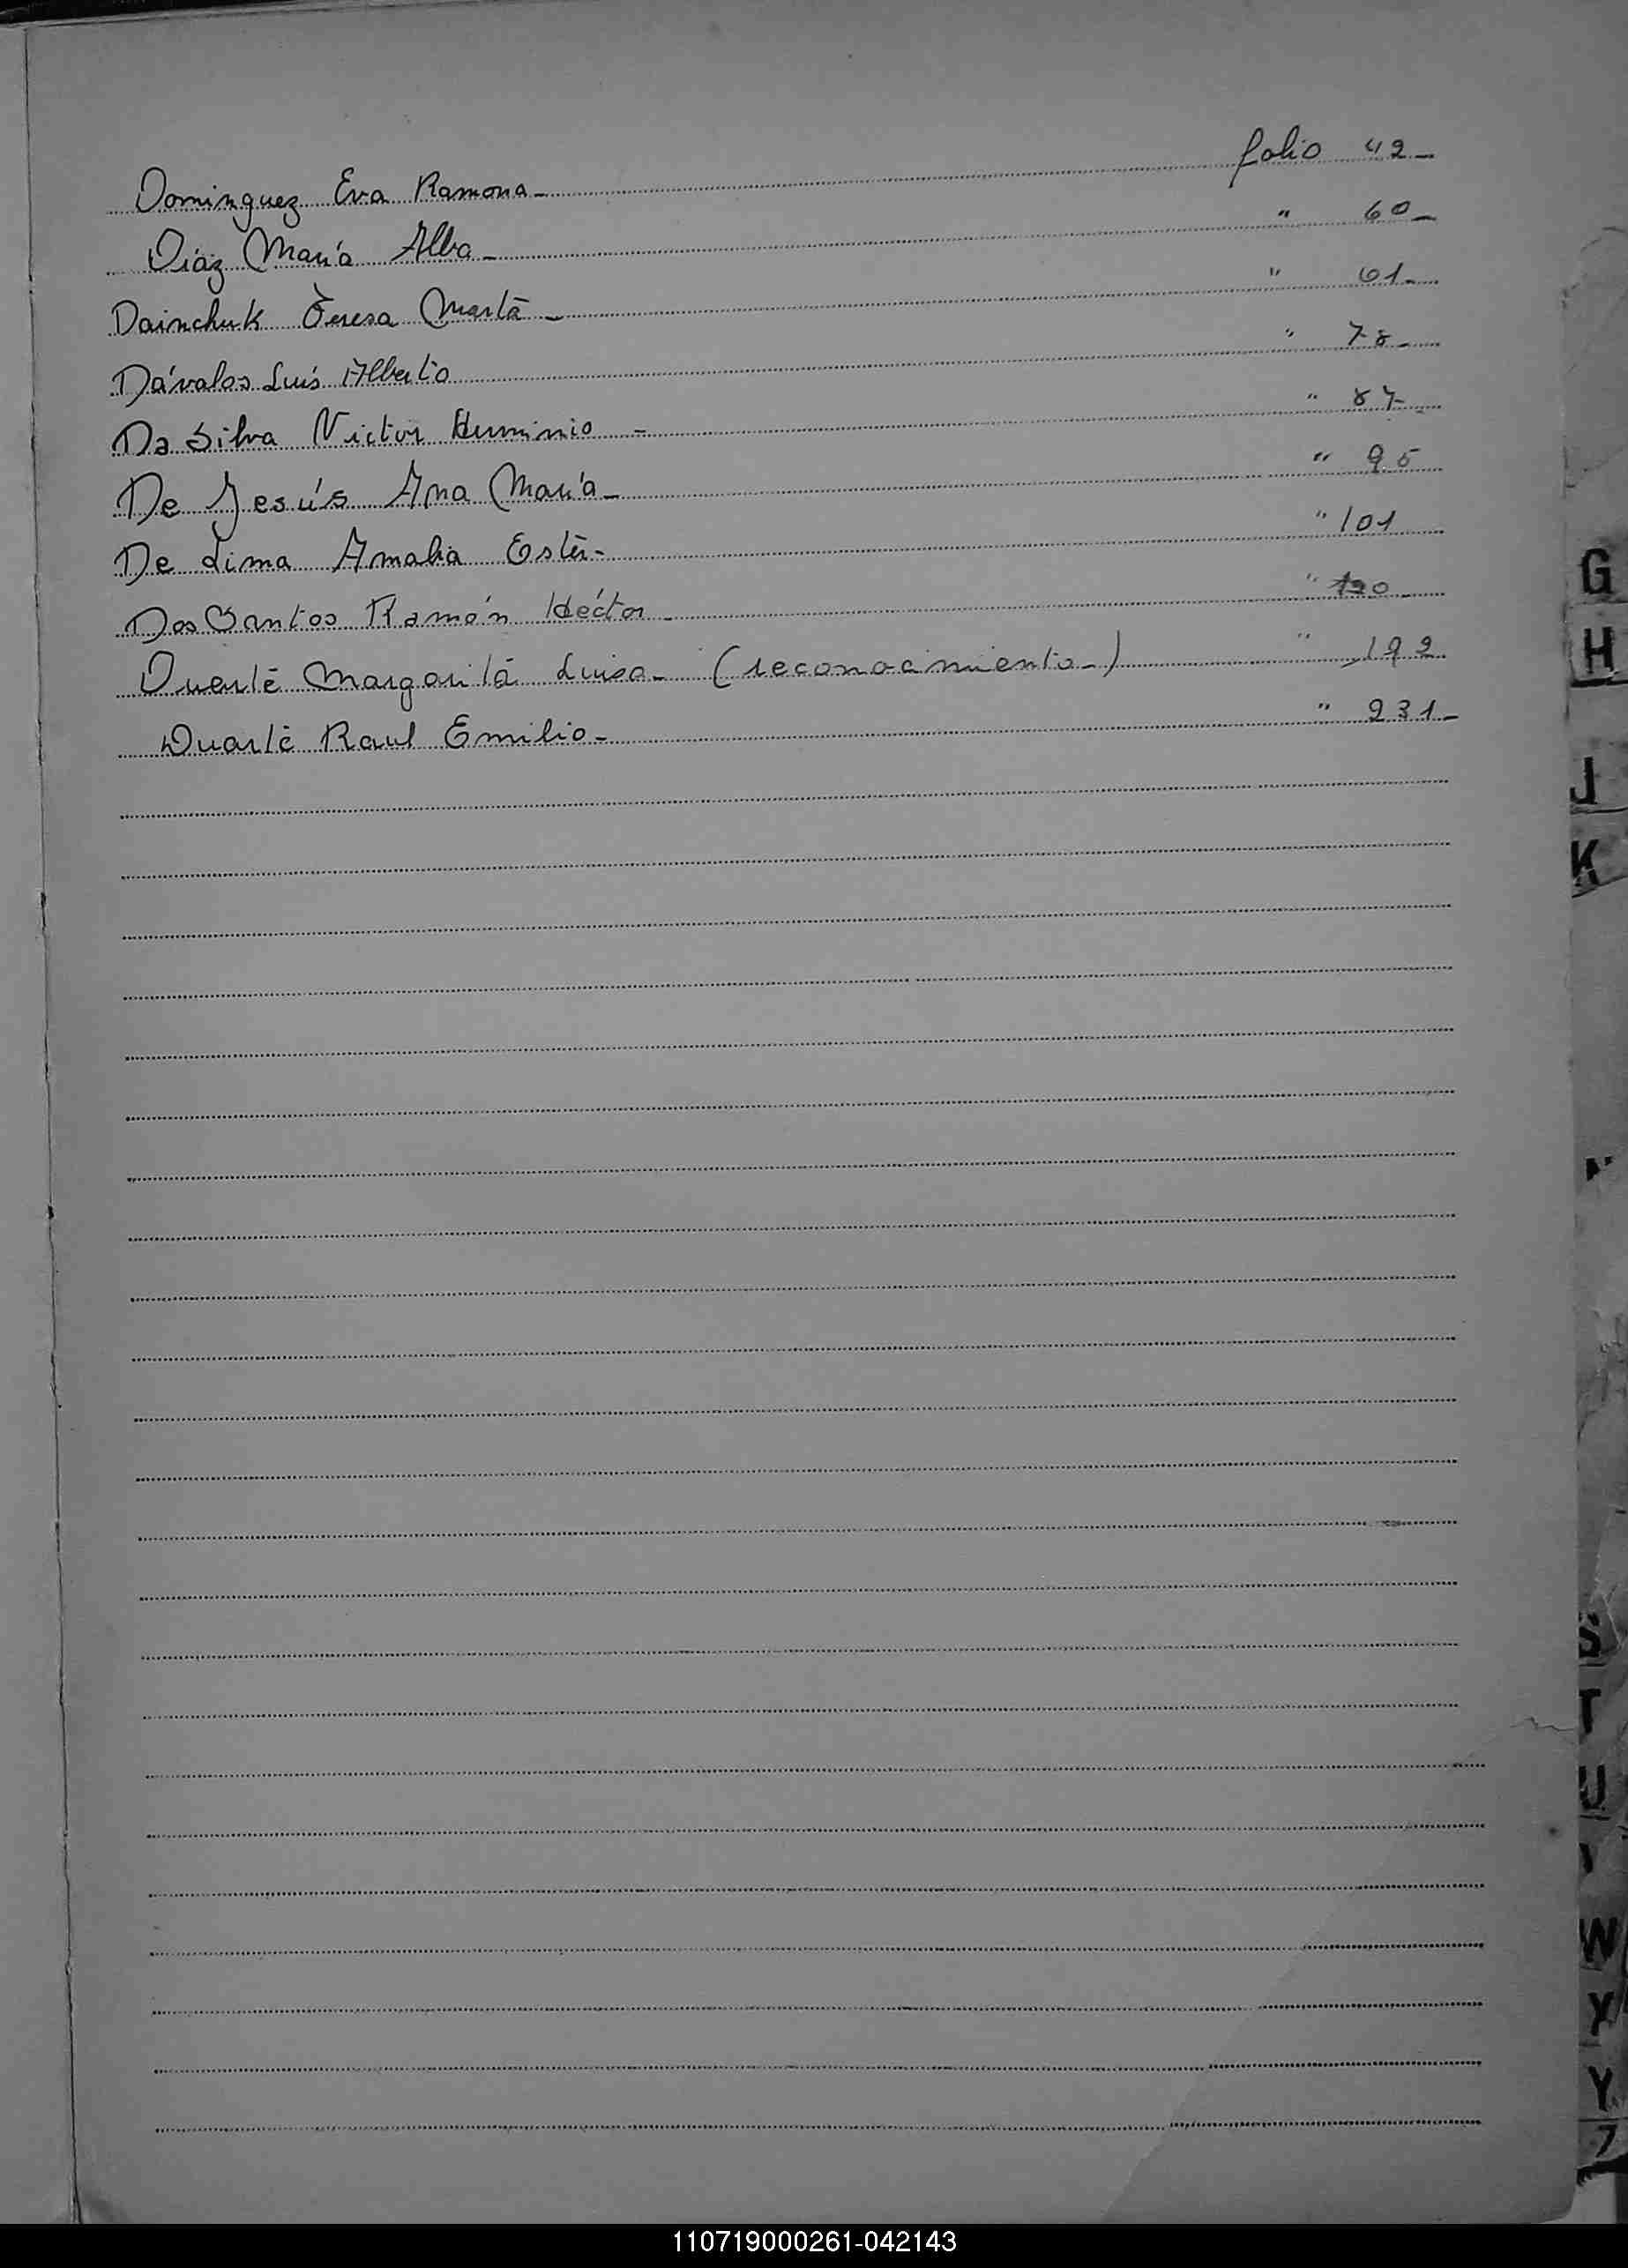 Dominguez Eva Ramona - folio 42 -
Diaz María Alba - " 60 -
Dainchuk Teresa Marta - " 61 -
Dávalos Luis Alberto " 78 -
Da Silva Victor Herminio - " 87 -
De Jesús Ana María - " 95
De Lima Amalia Ester - " 101
Dos Santos Ramón Héctor - " 120 -
Duarte Margarita Luisa - (reconocimiento -) " 192
Duarte Raul Emilio - " 231 -
G
H
J
K
N
S
T
U
W
X
Y
Z
110719000261-042143